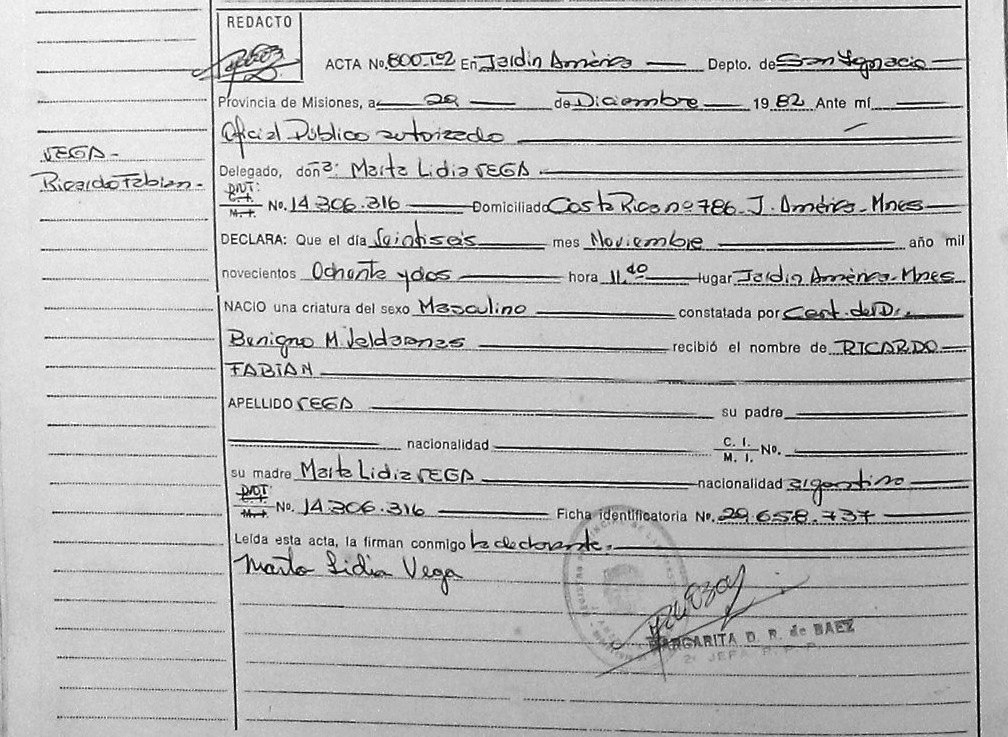 REDACTO
ACTA No. 800-Tº2 En Jardin América Depto. de San Ignacio
Provincia de Misiones, a 29 de Diciembre 1982 Ante mí
Oficial Público autorizado
VEGA-
Delegado, doña: Marta Lidia VEGA
Ricardo Fabian-
DNI: C.I. M.I. No. 14.306.316 Domiciliado Costa Rica nº 786-J. América-Mnes
DECLARA: Que el día Veintiseis mes Noviembre año mil
novecientos Ochenta y dos hora 11,40 lugar Jardin América-Mnes
NACIO una criatura del sexo Masculino constatada por Cert. del Dr.
Benigno M. recibió el nombre de RICARDO
FABIAN
APELLIDO VEGA su padre
nacionalidad C. I. M. I. No.
su madre Marta Lidia VEGA nacionalidad argentina
DNI C.I. M.I. No. 14.306.316 Ficha identificatoria No. 29.658.737
Leída esta acta, la firman conmigo la declarante.
Marta Lidia Vega
MARGARITA D. R. de BAEZ
2º JEFA